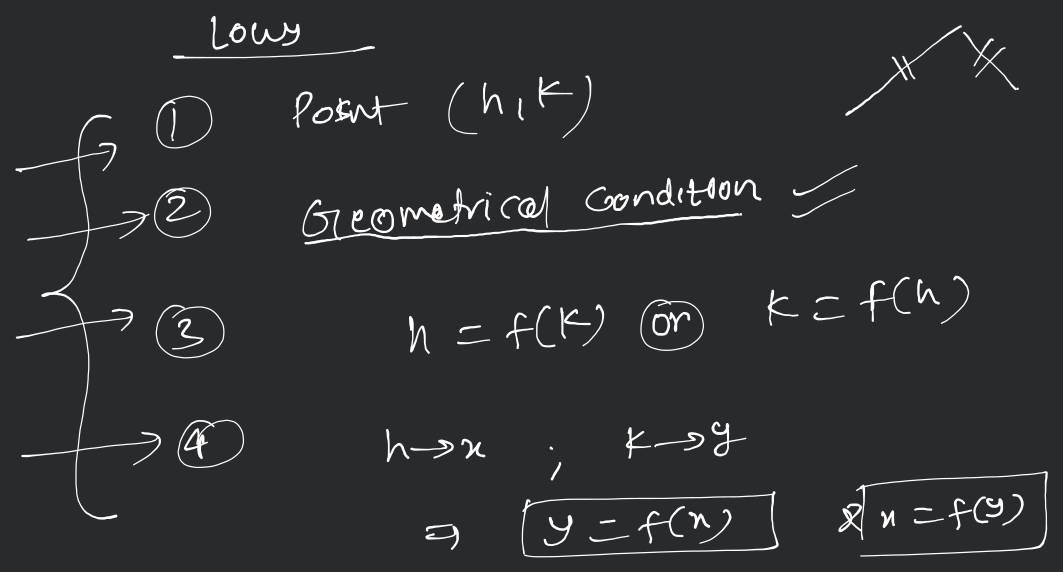 Locus
① Point (h, k)
② Geometrical Condition
③ h = f(k) or k = f(h)
④ h → x ; k → y
⇒ y = f(x) & x = f(y)